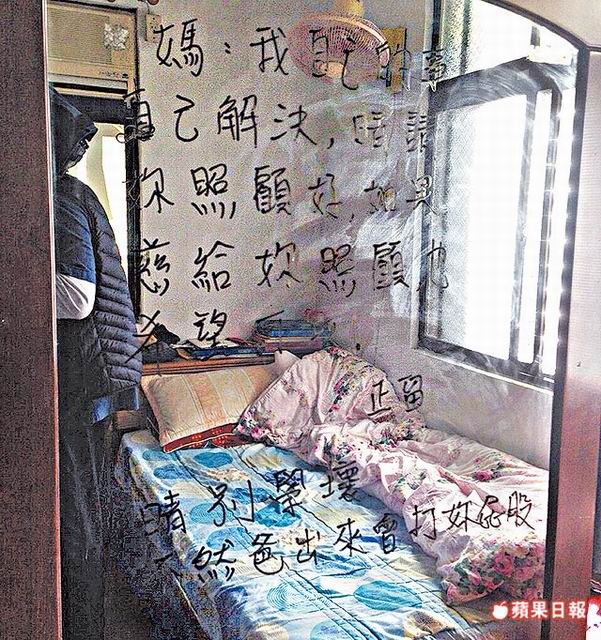 媽：我自己的事
自己解決，晴
妳照顧好，如果
慈給妳照顧
望
正留
晴別學壞
不然爸出來會打妳屁股
蘋果日報